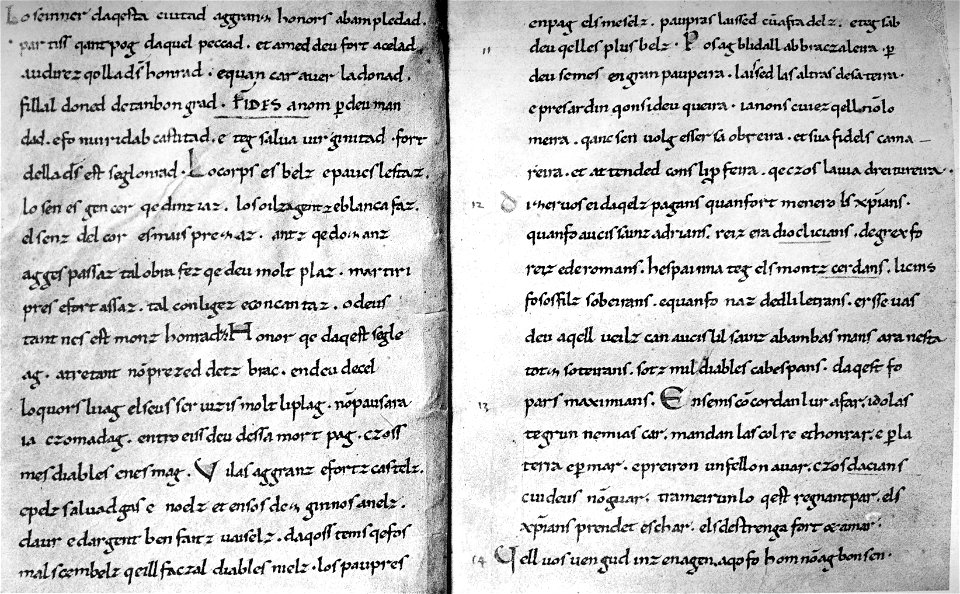 Lo seinner daqesta ciutad aggran honors abampledad.
partiss qant pog daquel peccad. et amed deu fort acelad
audirez qolla d's honrad. equan car auer la donad.
fillal doned detanbon grad. FIDES anom p deu man
dad. efo nuirid ab castitad. e teg salua uirginitad. fort
della d's est segl onrad. Lo corps es belz e paucs lestaz.
lo sen es gencer qe dinz iaz. los oilz a gentz e blanca faz.
el senz del cor es mais prezaz. antz qe donz anz
agges passaz tal obra fez qe deu molt plaz. martiri
pres e fort assaz. tal conligez e con cantaz. o deus
tant nes est monz honradz. Honor qe daqest segle
ag. atretant nō prezed detz brac. en deu de cel
lo quors li uag el seus seruizis molt li plag. nō pausara
ia czo madag. entro eiss deu dessa mort pag. czoss
mes diables en es mag. Vilas ag granz e fortz castelz.
e palz saluadgas e nodz et ensos dez ginnos anelz.
daur e dargent ben faitz uaiselz. daqoss tems qe fos
mals cembelz qeill faczal diables melz. los paupres
en pag els meselz. paupras laissed cū afra delz. e teg sab
11 deu qelles plus belz. Pos ag blidall ab braczaleira. p
deu se mes en gran paupeira. laissed las altras de sa teira.
e pres ardin qon si deu queira. ia nons cuiez qell ciō lo
meira. qanc sen uolg esser sa obreira. et sua fidels cama
reira. et attended cons lipfeira. qe czos lauia dreitureira.
12 diner uos ei daqelz pagans quan fort menero ls xpians.
quan fo aucis sainz adrians. reiz era dioclicians. de grex fo
reiz e de romans. hespainna teg els montz cerdans. licins
fo sos filz soberans. e quan fo naz dedliletrans. erss e uas
deu aqell uealz can aucis lil sainz abambas mans ara nesta
totz soteirans. sotz mil diables cabespans. daqest fo
13 pars maximians. Ensems cōcordan lur afar. idolas
tegrun nemias car. mandan las colre et honrar. e p la
terra e p mar. e preiron un fellon auar. czos dacians
cui deus nō guar. trameirun lo qest regnant par. els
xpians prendet e schar. els destrenga fort & amar.
14 Qell uos uengud inz en agen. aqo fo hom nō ag bon sen.